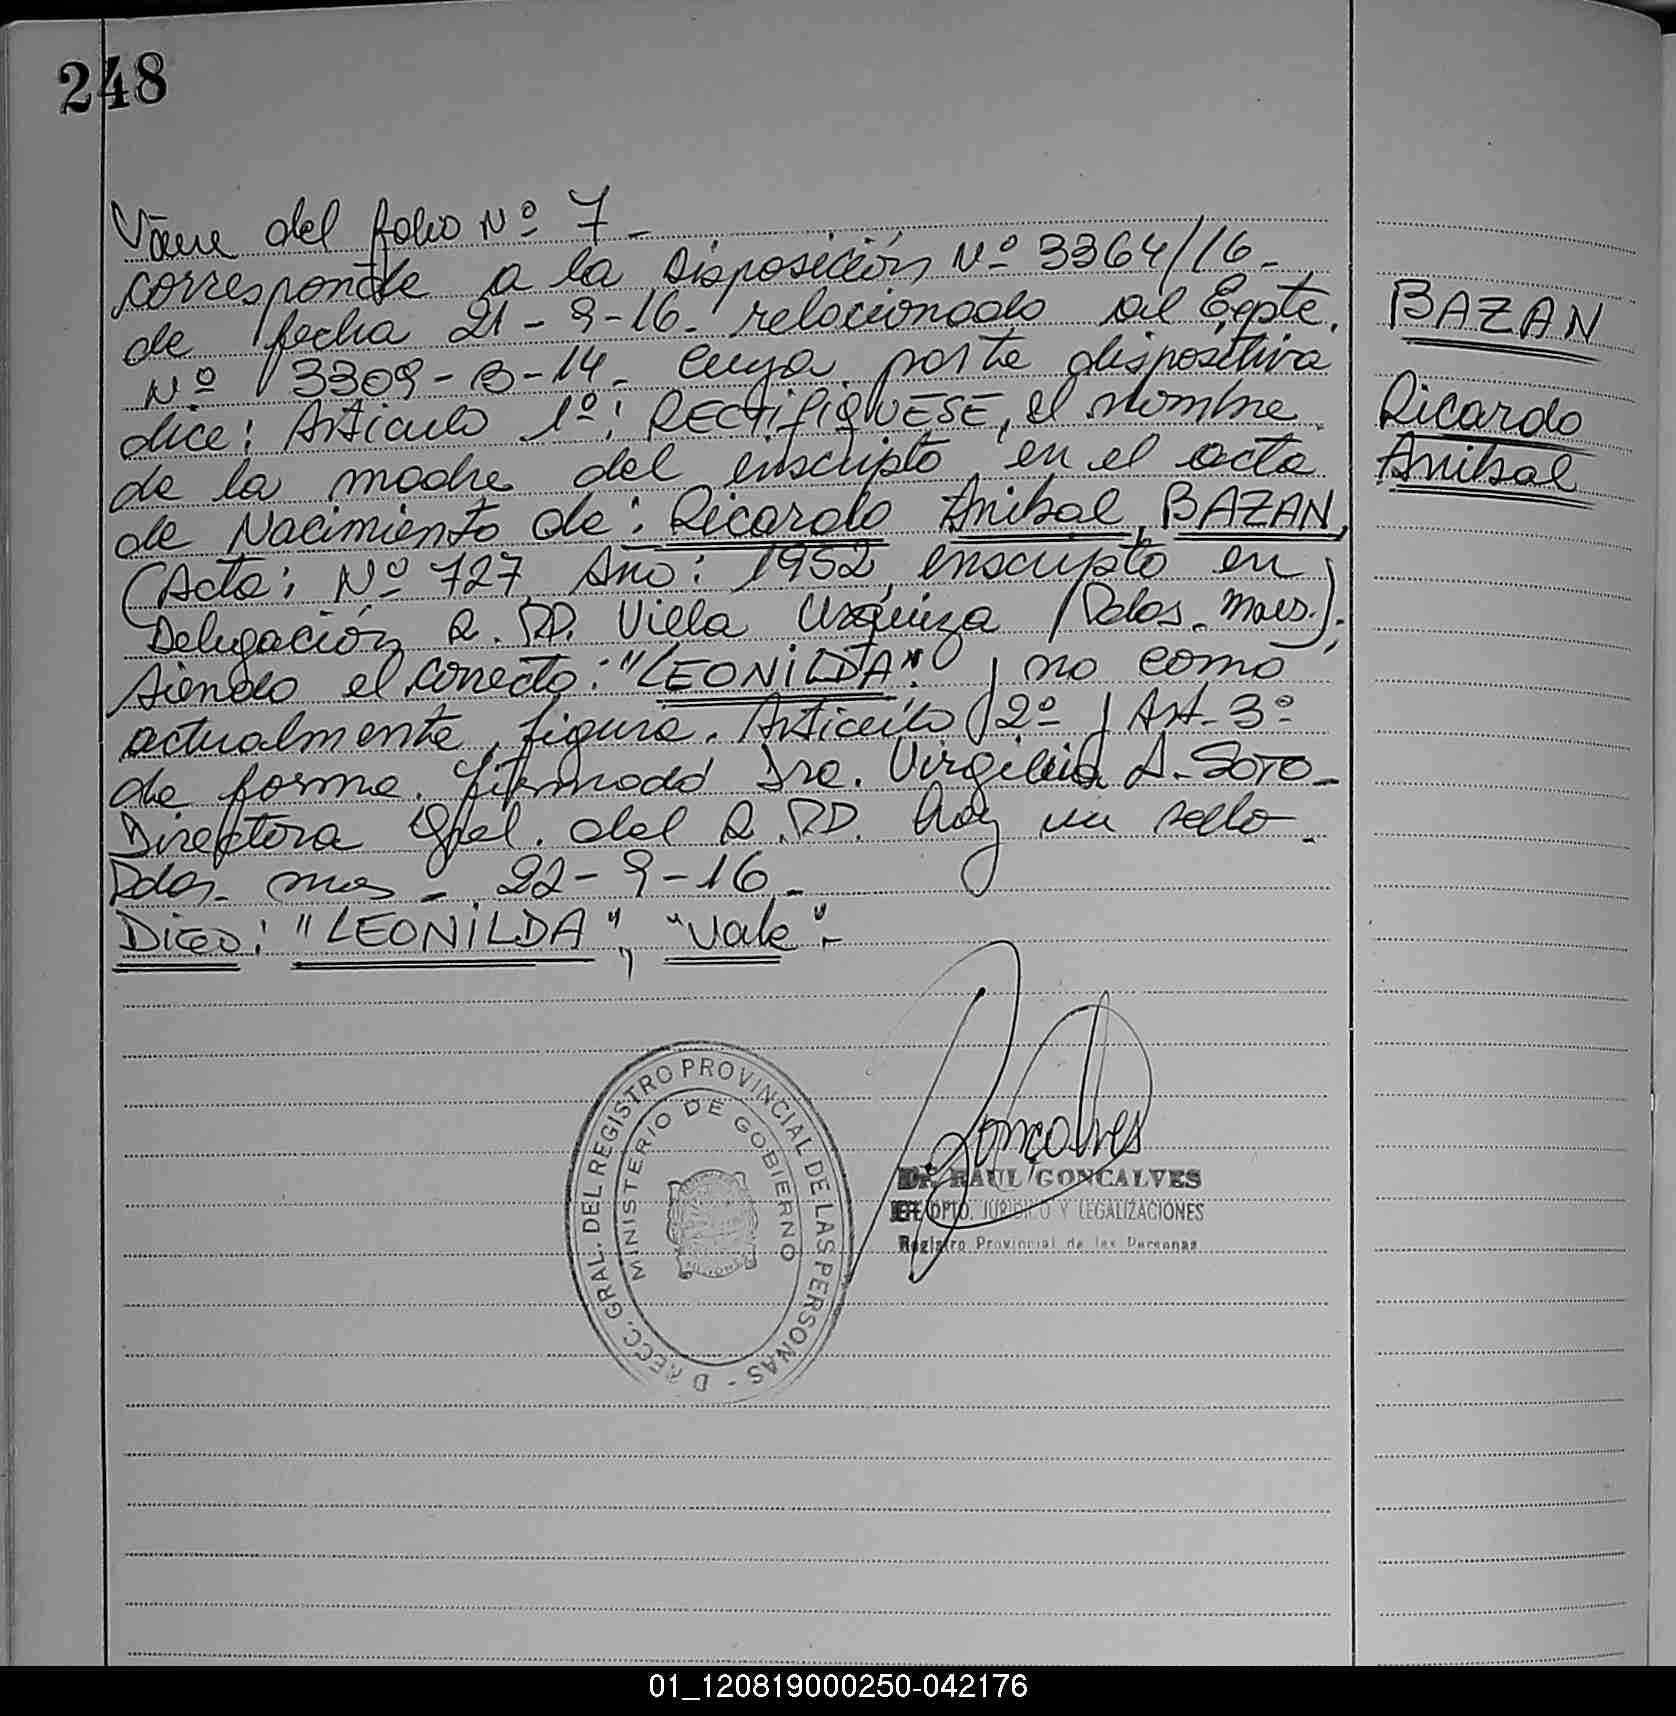 248
Viene del folio Nº 7 -
corresponde a la Disposición Nº 3364/16 -
de fecha 21 - 9 - 16 - relacionado al Expte.
Nº 3309 - B - 14 - cuya parte dispositiva
dice: Articulo 1º: RECTIFIQUESE, el nombre
de la madre del inscripto en el acta
de Nacimiento de: Ricardo Anibal BAZAN,
(Acta: Nº 727, Año: 1952, inscripto en
Delegación R. PP. Villa Urquiza / Pdas. Mnes.);
siendo el correcto: "LEONILDA" y no como
actualmente figura. Articulo 2º y Art. 3º
de forma. Firmado Dra. Virgilia A. SOTO -
Directora Gral. del R. PP. hay un sello -
Pdas. Mnes - 22 - 9 - 16 -
Digo: "LEONILDA", "Vale" -
BAZAN
Ricardo
Anibal
DIRECC. GRAL. DEL REGISTRO PROVINCIAL DE LAS PERSONAS -
MINISTERIO DE GOBIERNO
MISIONES
Goncalves
Dr. RAUL GONCALVES
JEFE DPTO. JURIDICO Y LEGALIZACIONES
Registro Provincial de las Personas
01_120819000250-042176